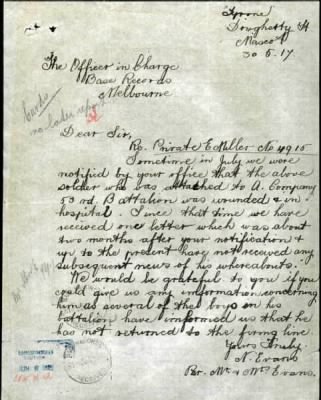 Tyrone
Dougherty St
Mascot
30.5.17
The Officer in Charge
Base Records
Melbourne
no later report
Dear Sir,
Re. Private E Miller No 4915
Sometime in July we were
notified by your office that the above
soldier who was attached to A. Company
53 rd. Battalion was wounded & in
hospital. Since that time we have
received one letter which was about
two months after your notification &
up to the present have not received any
subsequent news of his whereabouts.
We would be grateful to you if you
could give us any information concerning
him as several of the boys in his
battalion have informed us that he
has not returned to the firing line
Yours Truly.
N. Evans
Per. Mr. & Mrs Evans.